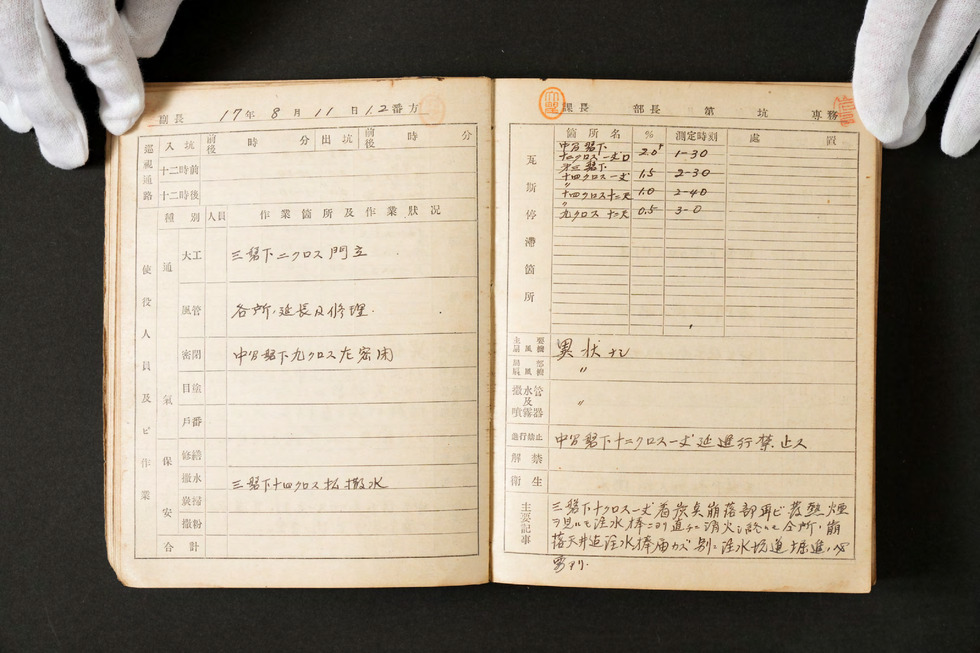 副長 17年 8月 11日 1.2番方
巡視通路 入坑 前後 時 分 出坑 前後 時 分
十二時前
十二時後
使役人員及ビ作業
種別 人員 作業箇所及作業狀况
通氣
大工 三盤下二クロス門立
風管 各所、延長及修理.
密閉 中 盤下九クロス左密閉
目塗
戶番
保安
修繕
撒水 三盤下十四クロス払撒水
炭掃
撒粉
合計
課長 部長 第 坑 專務
瓦斯停滯箇所
箇所名 % 測定時刻 處置
中 盤下
十二クロス一丈口 2.0 1-30
三盤下
十四クロス一丈 1.5 2-30
〃
十四クロス十二尺 1.0 2-40
〃
九クロス 十二尺 0.5 3-0
主要扇風機 異状ナシ
局部扇風機 〃
撒水管及噴霧器 〃
進行禁止 中 盤下十二クロス一丈延進行禁止ス
解禁
衛生
主要記事
三盤下十クロス一丈 崩落部再ビ 煙
ヲ見ルモ注水棒ニヨリ直チニ消火シ終ルモ仝所、崩
落天井迠注水棒届カズ別ニ注水坑道掘進、必
要アリ.